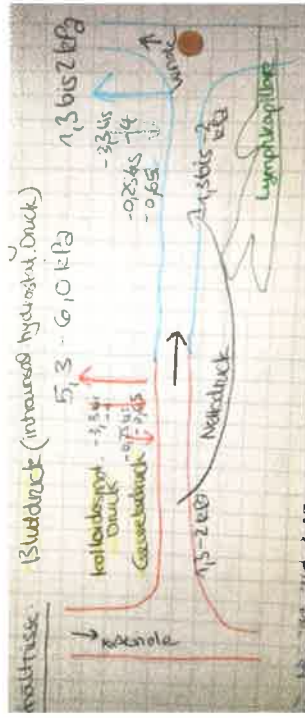 Blutdruck (intravasal hydrostat. Druck)
5,3 - 6,0 kPa
1,3 bis 2 kPa
kolloidosmot. -3,3 bis
Druck
-3,3 bis
-4
Gewebedruck
-0,25 bis
-0,65
-0,25 bis
-0,65
Venole
Arteriole
1,3-2 kPa
Nettodruck
1,3 bis 2
kPa
Lymphkapillare